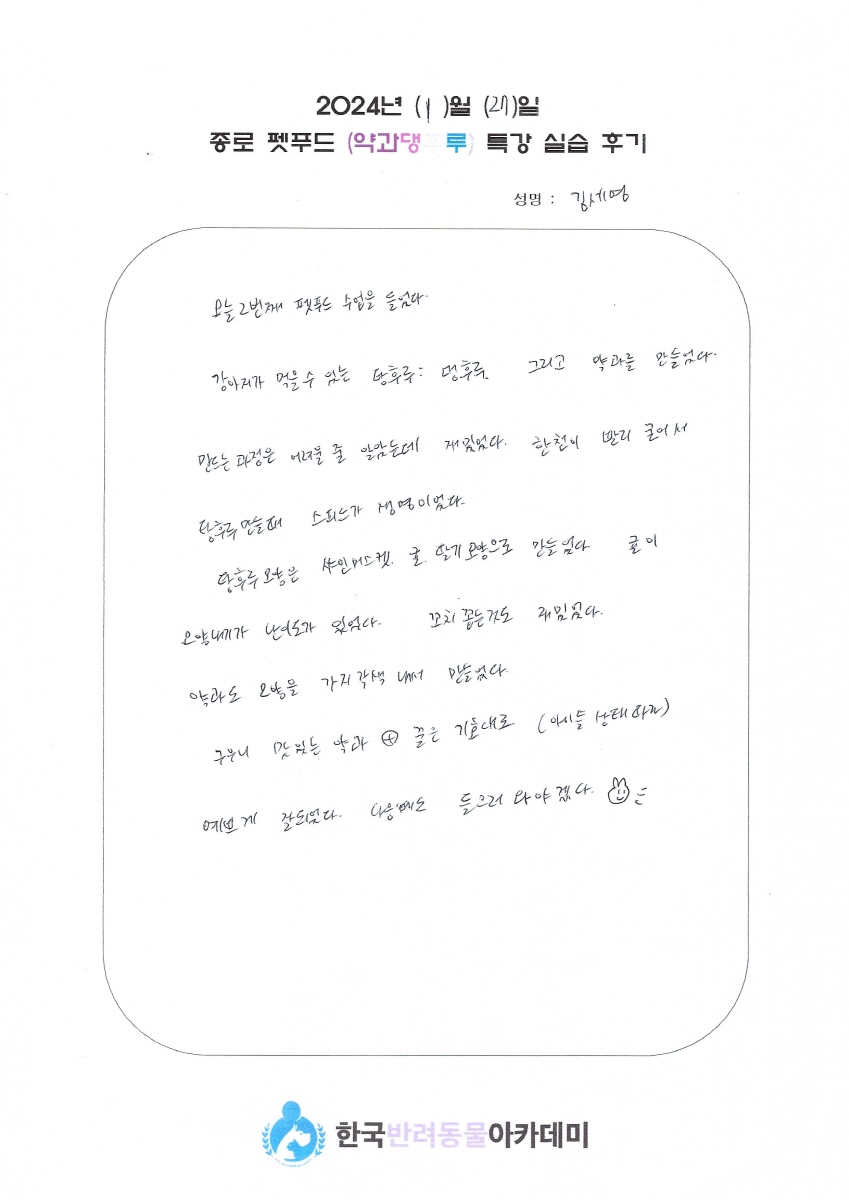 2024년 (1)월 (27)일
종로 펫푸드 (약과댕후루) 특강 실습 후기
성명 : 김세영
오늘 2번째 펫푸드 수업을 들었다.
강아지가 먹을수 있는 탕후루: 댕후루. 그리고 약과를 만들었다.
만드는 과정은 어려울 줄 알았는데 재밌었다. 한천이 빨리 굳어서
탕후루 만들때 스피드가 생명이었다.
탕후루 모양은 샤인머스켓, 귤, 딸기 모양으로 만들었다 귤이
모양내기가 난이도가 있었다. 꼬치 꽂는것도 재밌었다.
약과도 모양을 가지각색 내서 만들었다.
구우니 맛있는 약과 ⊕ 꿀은 기호대로 (아이들 상태따라)
예쁘게 잘되었다. 다음에도 들으러 와야겠다.
한국반려동물아카데미